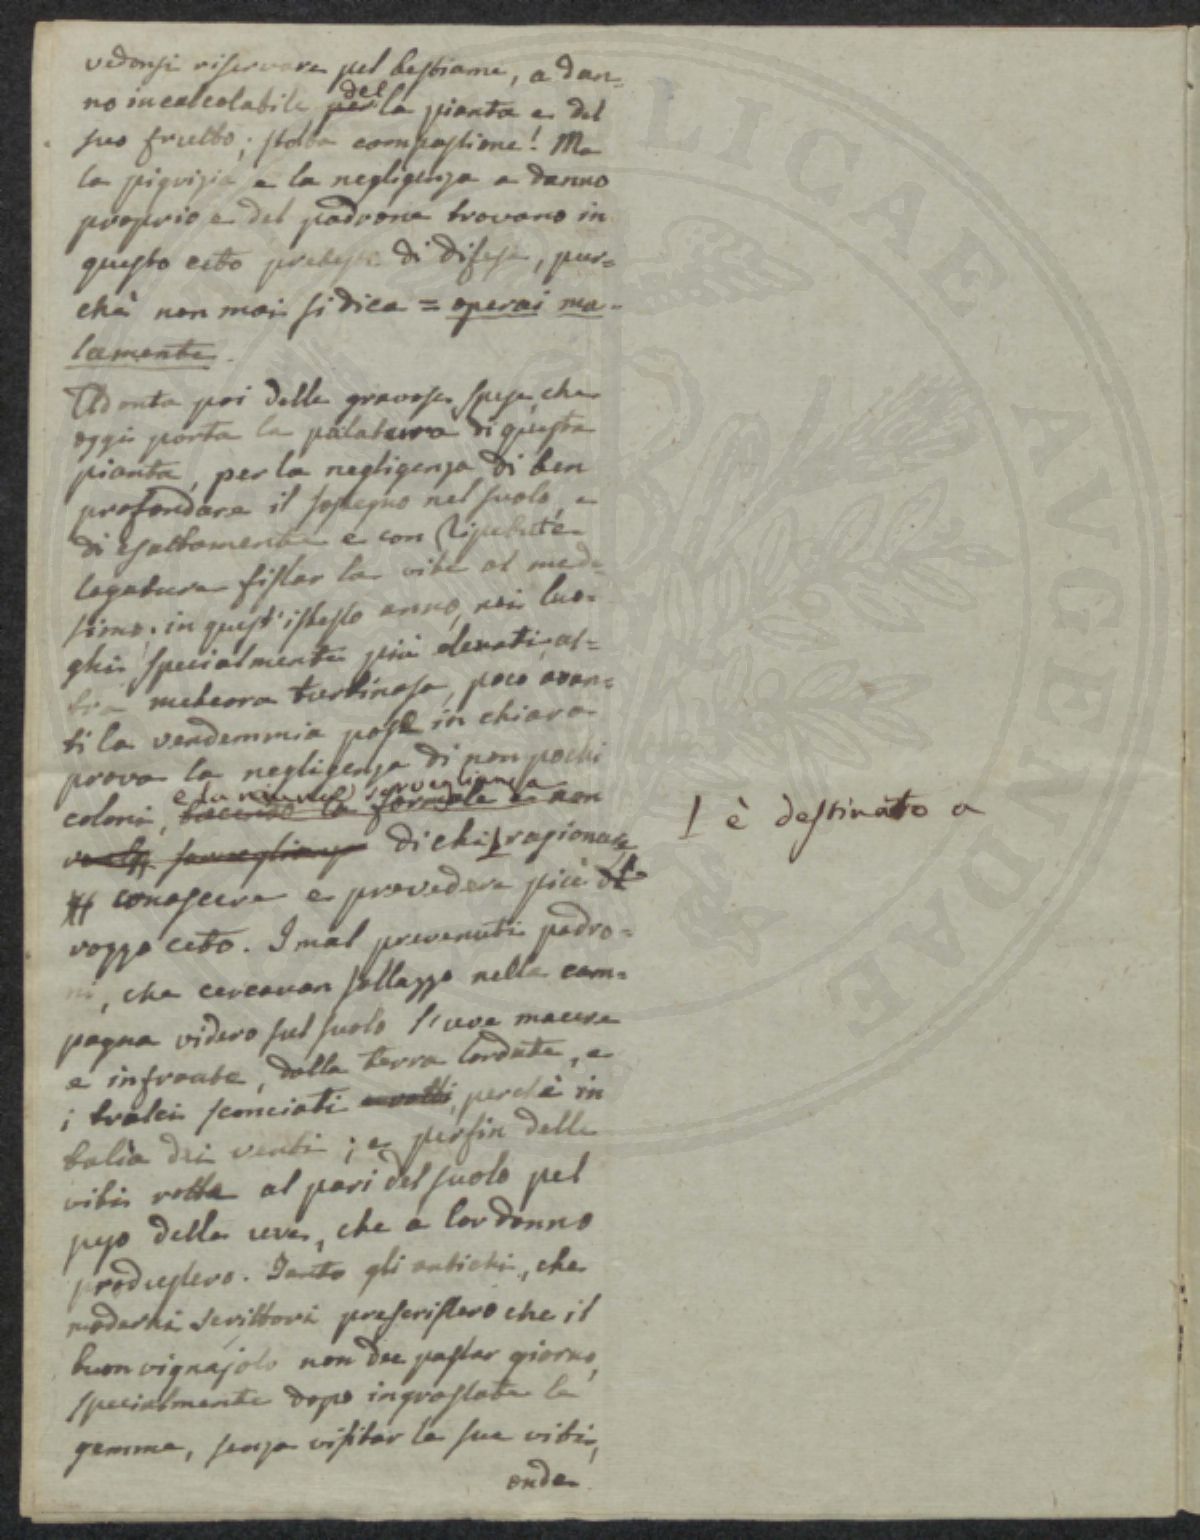 vedonsi riservare pel bestiame, a dan=
no incalcolabile per del la pianta e del
suo frutto; stolta compassione! Ma
la pigrizia e la negligenza a danno
proprio e del padrone trovano in
questo ceto pretesti di difesa, pur=
chè non mai si dica = operai ma-
lamente.
Ad onta poi delle gravose spese, che
oggi porta la palatura di questa
pianta, per la negligenza di ben
profondare il sostegno nel suolo, e
di esattamente e con ripetute
legature fissar la vite al mede-
simo; in quest'istesso anno, nei luo-
ghi specialmente più elevati, al=
tra meteora turbinosa, poco avan=
ti la vendemmia pose in chiara
prova la negligenza di non pochi
e la sorveglianza
coloni, la formale e non
sorveglianza di chi ragionare
conoscere e provedere più
rozzo ceto. I mal prevenuti padro=
ni, che cercavan sollazzo nella cam=
pagna videro sul suolo l'uve macere
e infrante, dalla terra lordate, e
i tralci sconciati e rotti, perchè in
balìa dei venti; e perfin delle
viti rotte al pari del suolo pel
peso delle uve, che a lor danno
produssero. Tanto gli antichi, che
moderni scrittori prescrissero che il
buon vignajolo non dee passar giorno,
specialmente dopo ingrossate le
gemme, senza visitar le sue viti,
onde
è destinato a
LICAE AVGENDAE